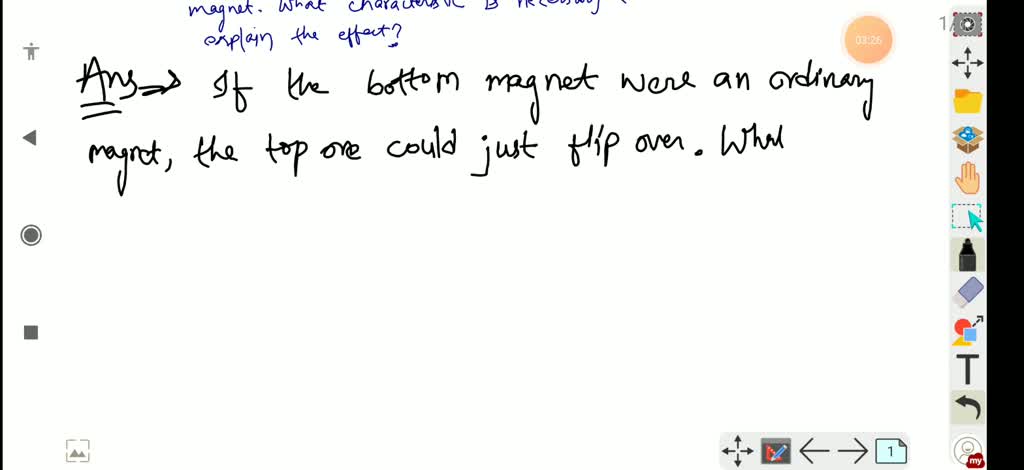 magnet. What characteristic is necessary
explain the effect?
Ans⇒ If the bottom magnet were an ordinary
magnet, the top one could just flip over. What
03:26
1/
T
1
my